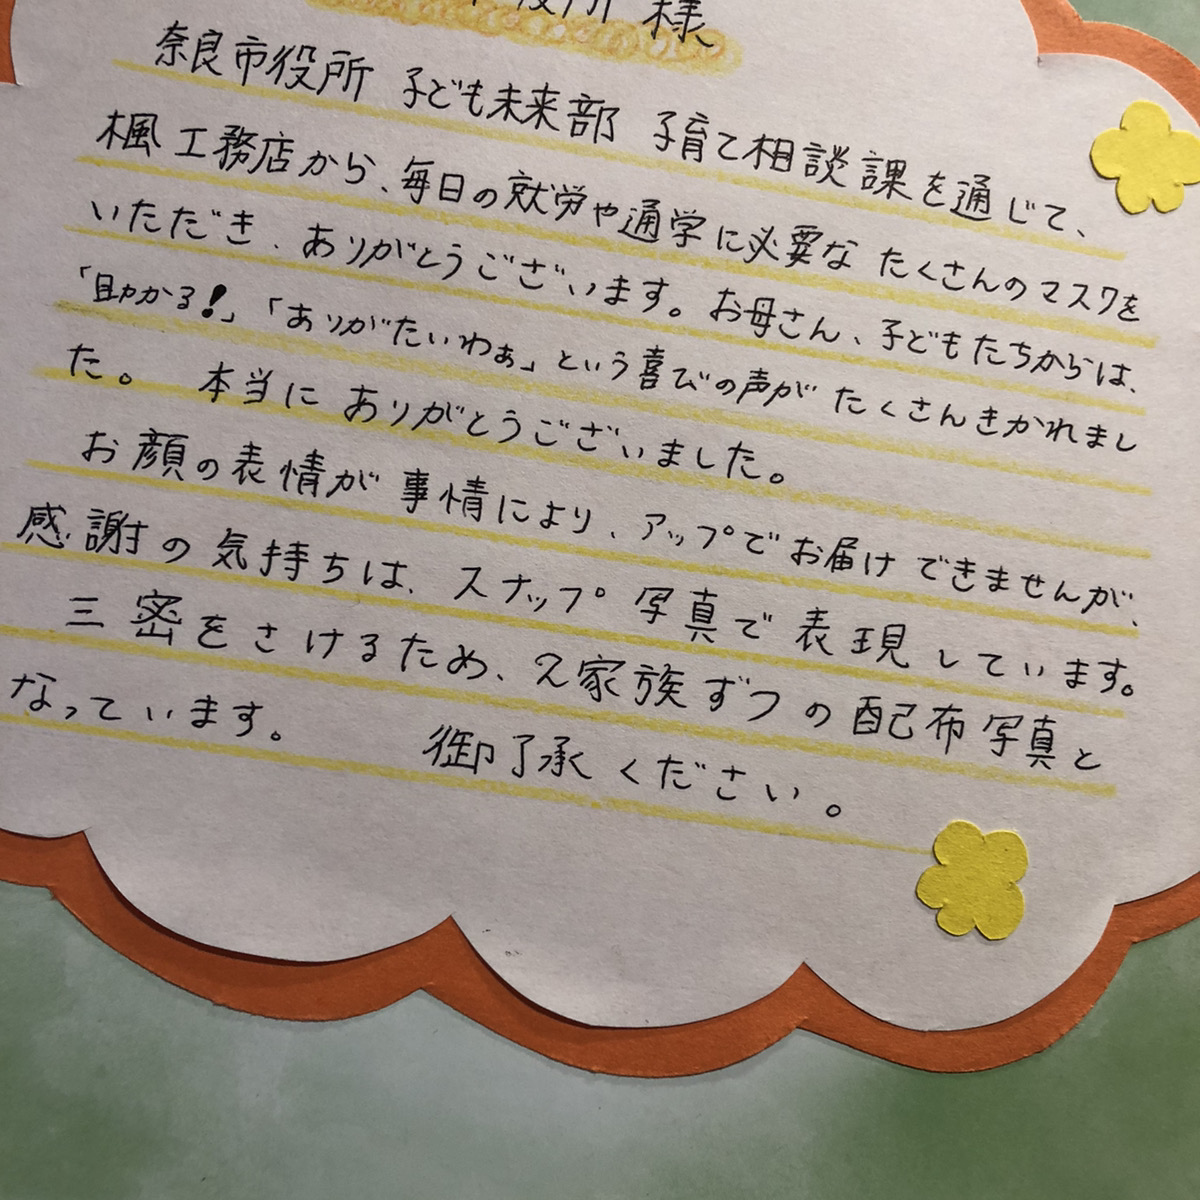 役所 様
奈良市役所 子ども未来部 子育て相談課を通じて、
楓工務店から、毎日の就労や通学に必要な たくさんのマスクを
いただき、ありがとうございます。お母さん、子どもたちからは、
「助かる!」「ありがたいわぁ」という喜びの声が たくさんきかれまし
た。 本当に ありがとうございました。
お顔の表情が 事情により、アップでお届け できませんが、
感謝の気持ちは、スナップ写真で表現しています。
三密をさけるため、2家族ずつの配布写真と
なっています。 御了承ください。